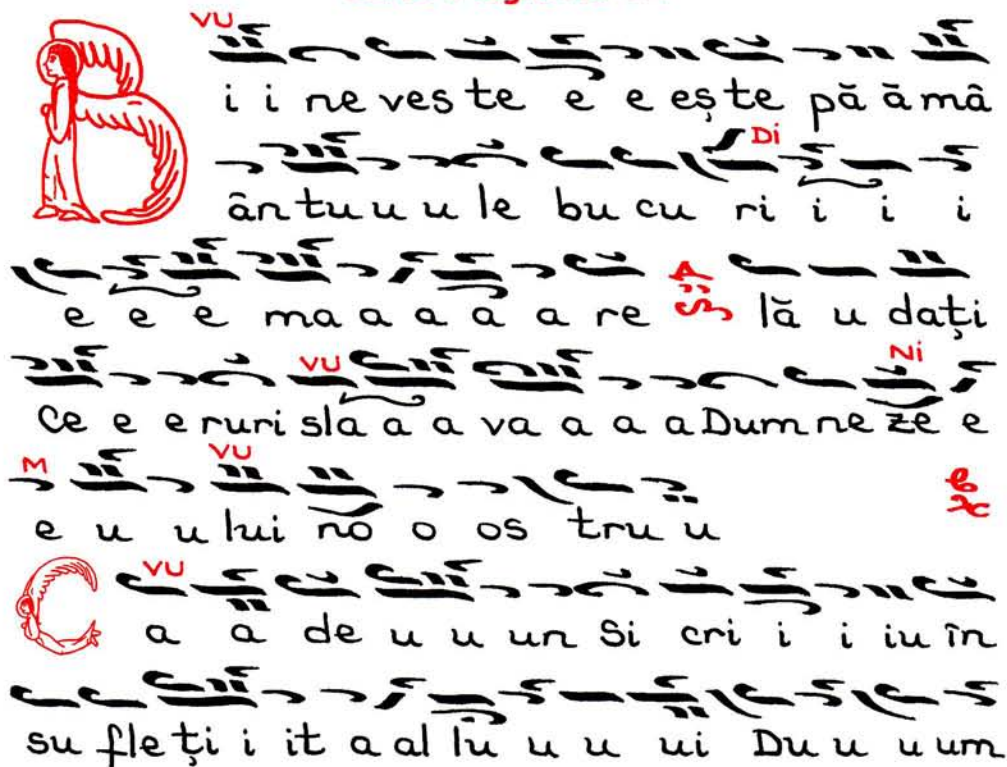 VU
B i i ne ves te e e eș te pă ă mâ
Di
ân tu u u u le bu cu ri i i i
e e e ma a a a a re lă u dați
VU Ni
Ce e e ruri sla a a va a a a Dum ne ze e
M VU
e u u lui no o os tru u
VU
C a a de u u un Si cri i i iu în
su fle ți i it a al lu u u ui Du u u um